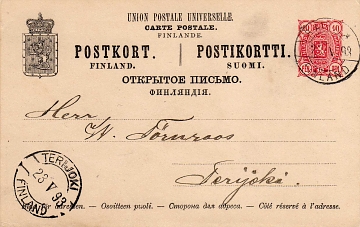 UNION POSTALE UNIVERSELLE.
CARTE POSTALE.
FINLANDE
POSTKORT. POSTIKORTTI.
FINLAND. SUOMI.
ОТКРЫТОЕ ПИСЬМО.
ФИНЛЯНДІЯ.
10 10
Herr
W. Törnroos
Terijoki.
TERIJOKI
23 V 93
FINLAND
för adressen. - Osoitteen puoli. - Сторона для адреса. - Côté réservé à l'adresse.